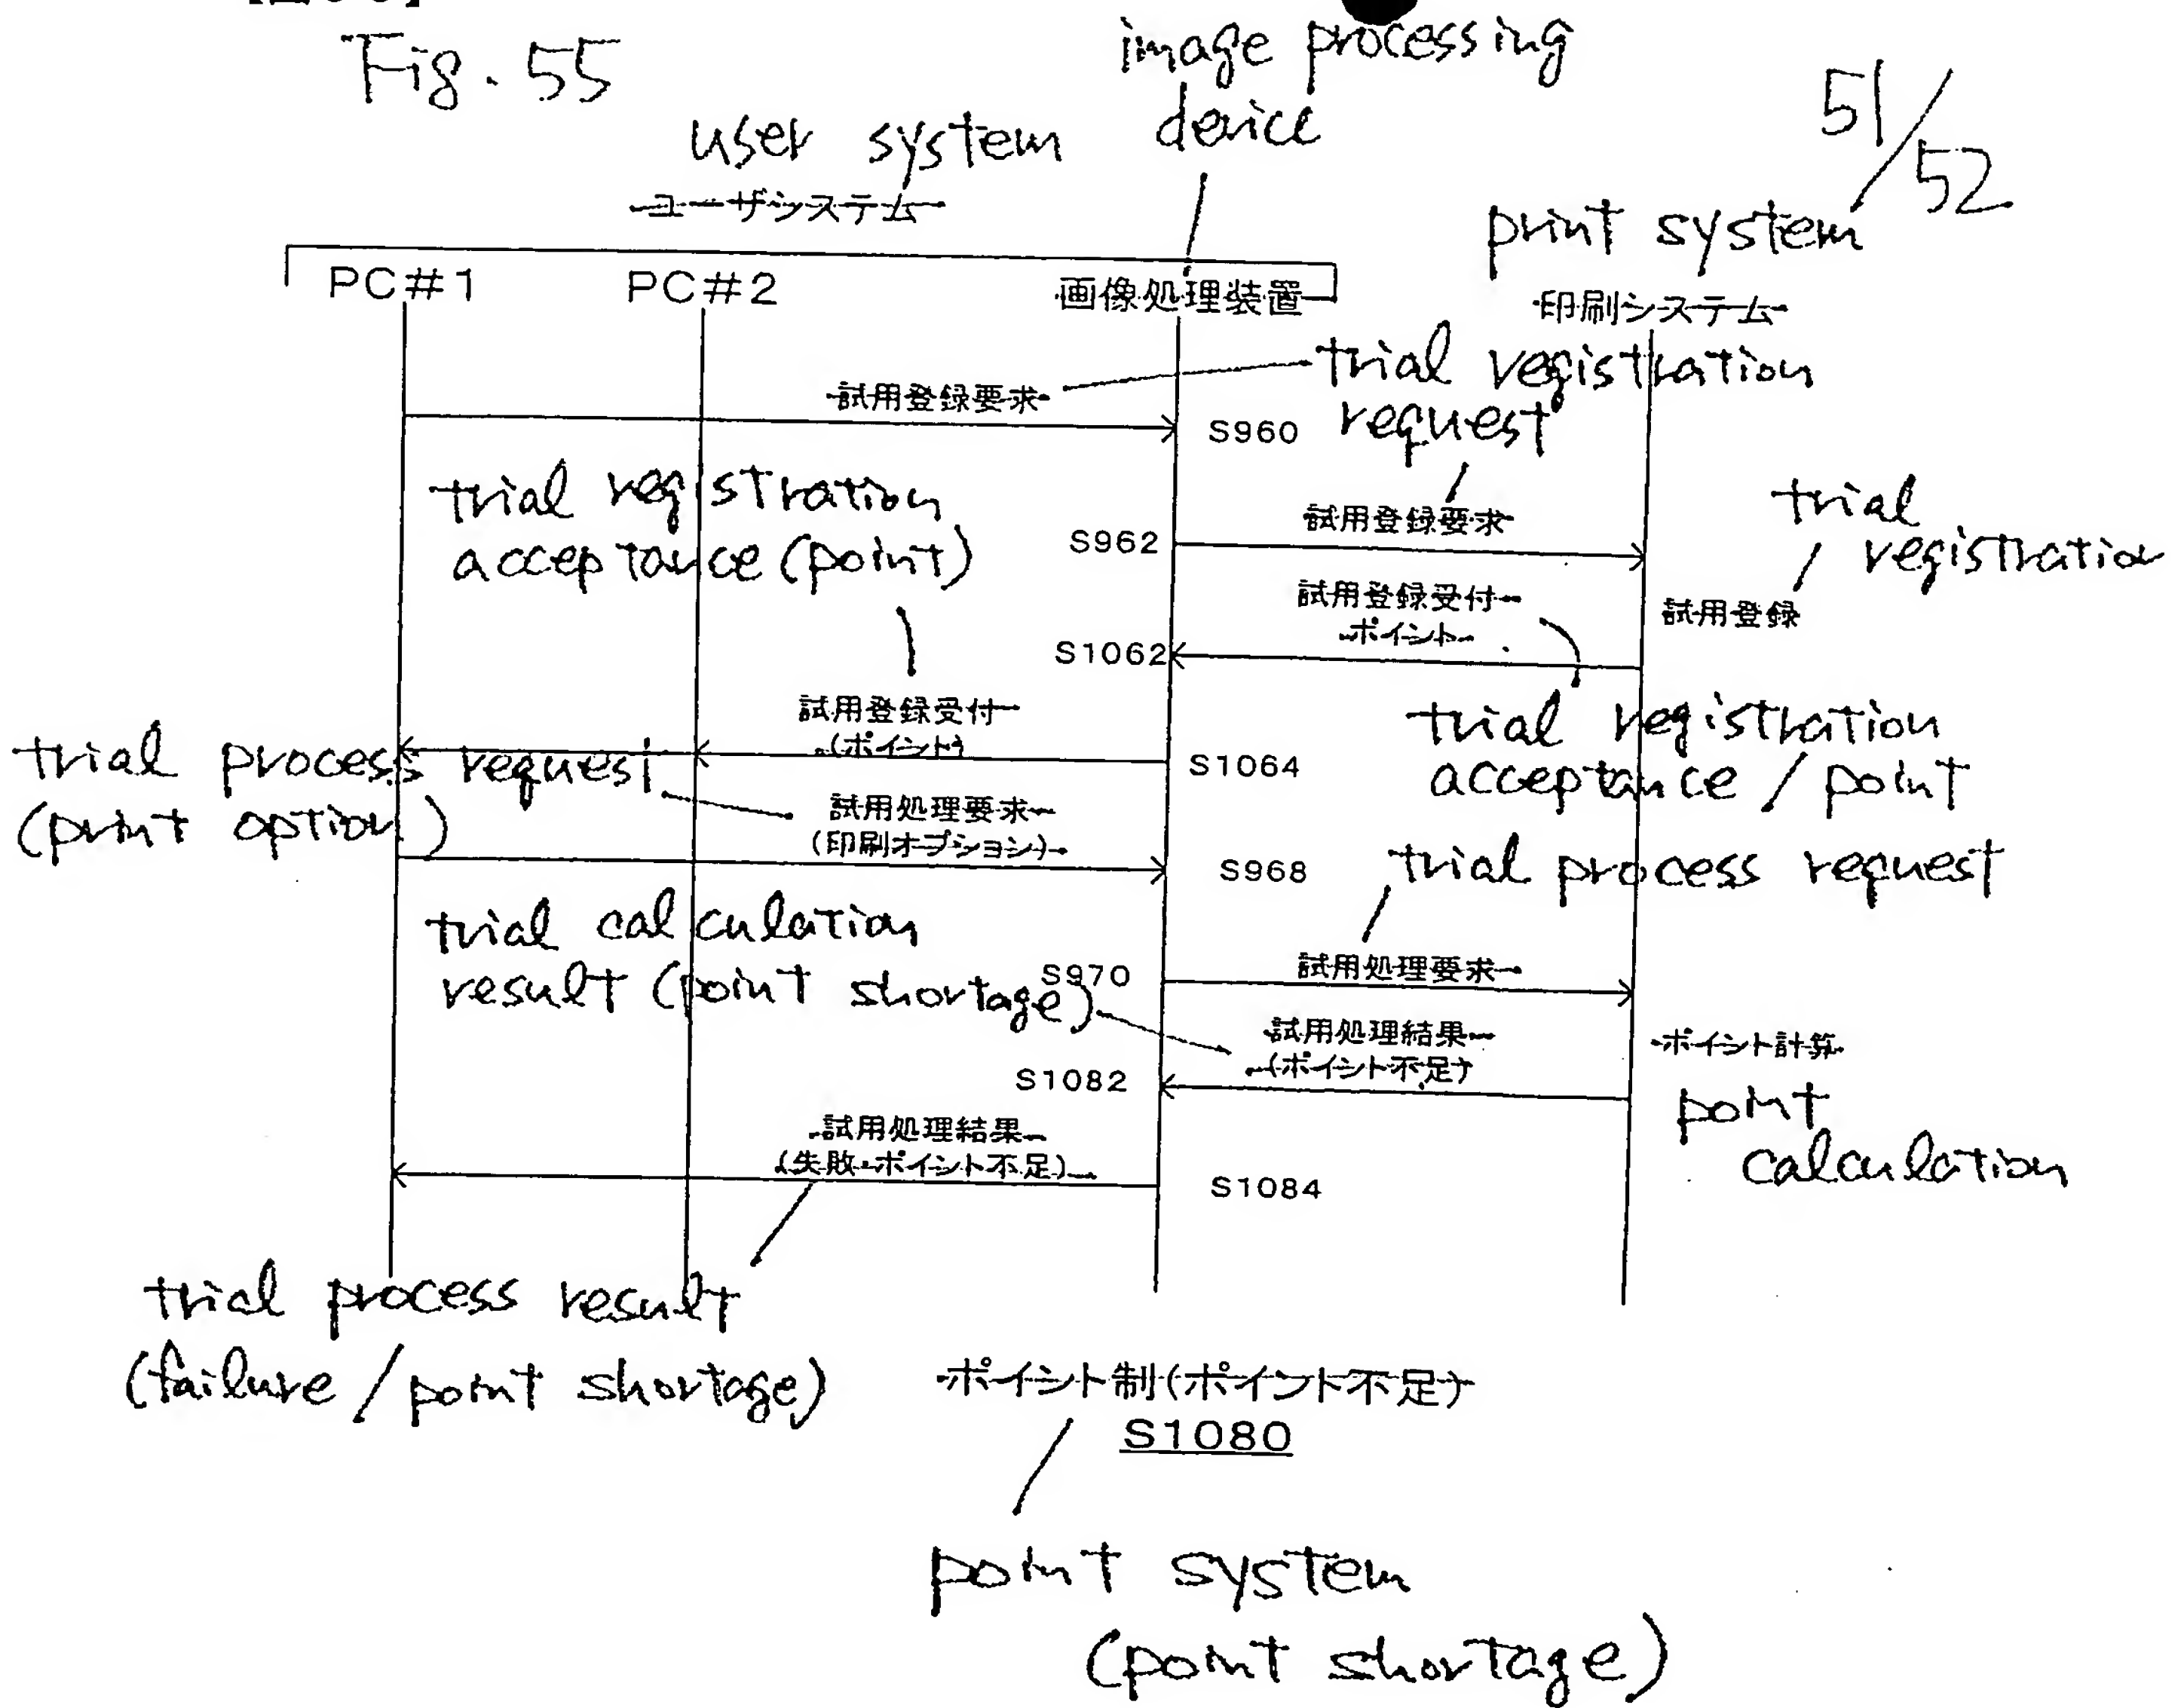 Fig. 55
image processing
device
51/52
user system
ユーザシステム
print system
PC#1
PC#2
画像処理装置
印刷システム
試用登録要求
trial registration
request
S960
trial registration
acceptance (point)
S962
試用登録要求
trial
registration
試用登録受付
ポイント
試用登録
S1062
試用登録受付
(ポイント)
S1064
trial registration
acceptance / point
trial process request
(print option)
試用処理要求
(印刷オプション)
S968
trial process request
trial calculation
result (point shortage)
S970
試用処理要求
試用処理結果
(ポイント不足)
ポイント計算
S1082
point
calculation
試用処理結果
(失敗・ポイント不足)
S1084
trial process result
(failure / point shortage)
ポイント制(ポイント不足)
S1080
point system
(point shortage)